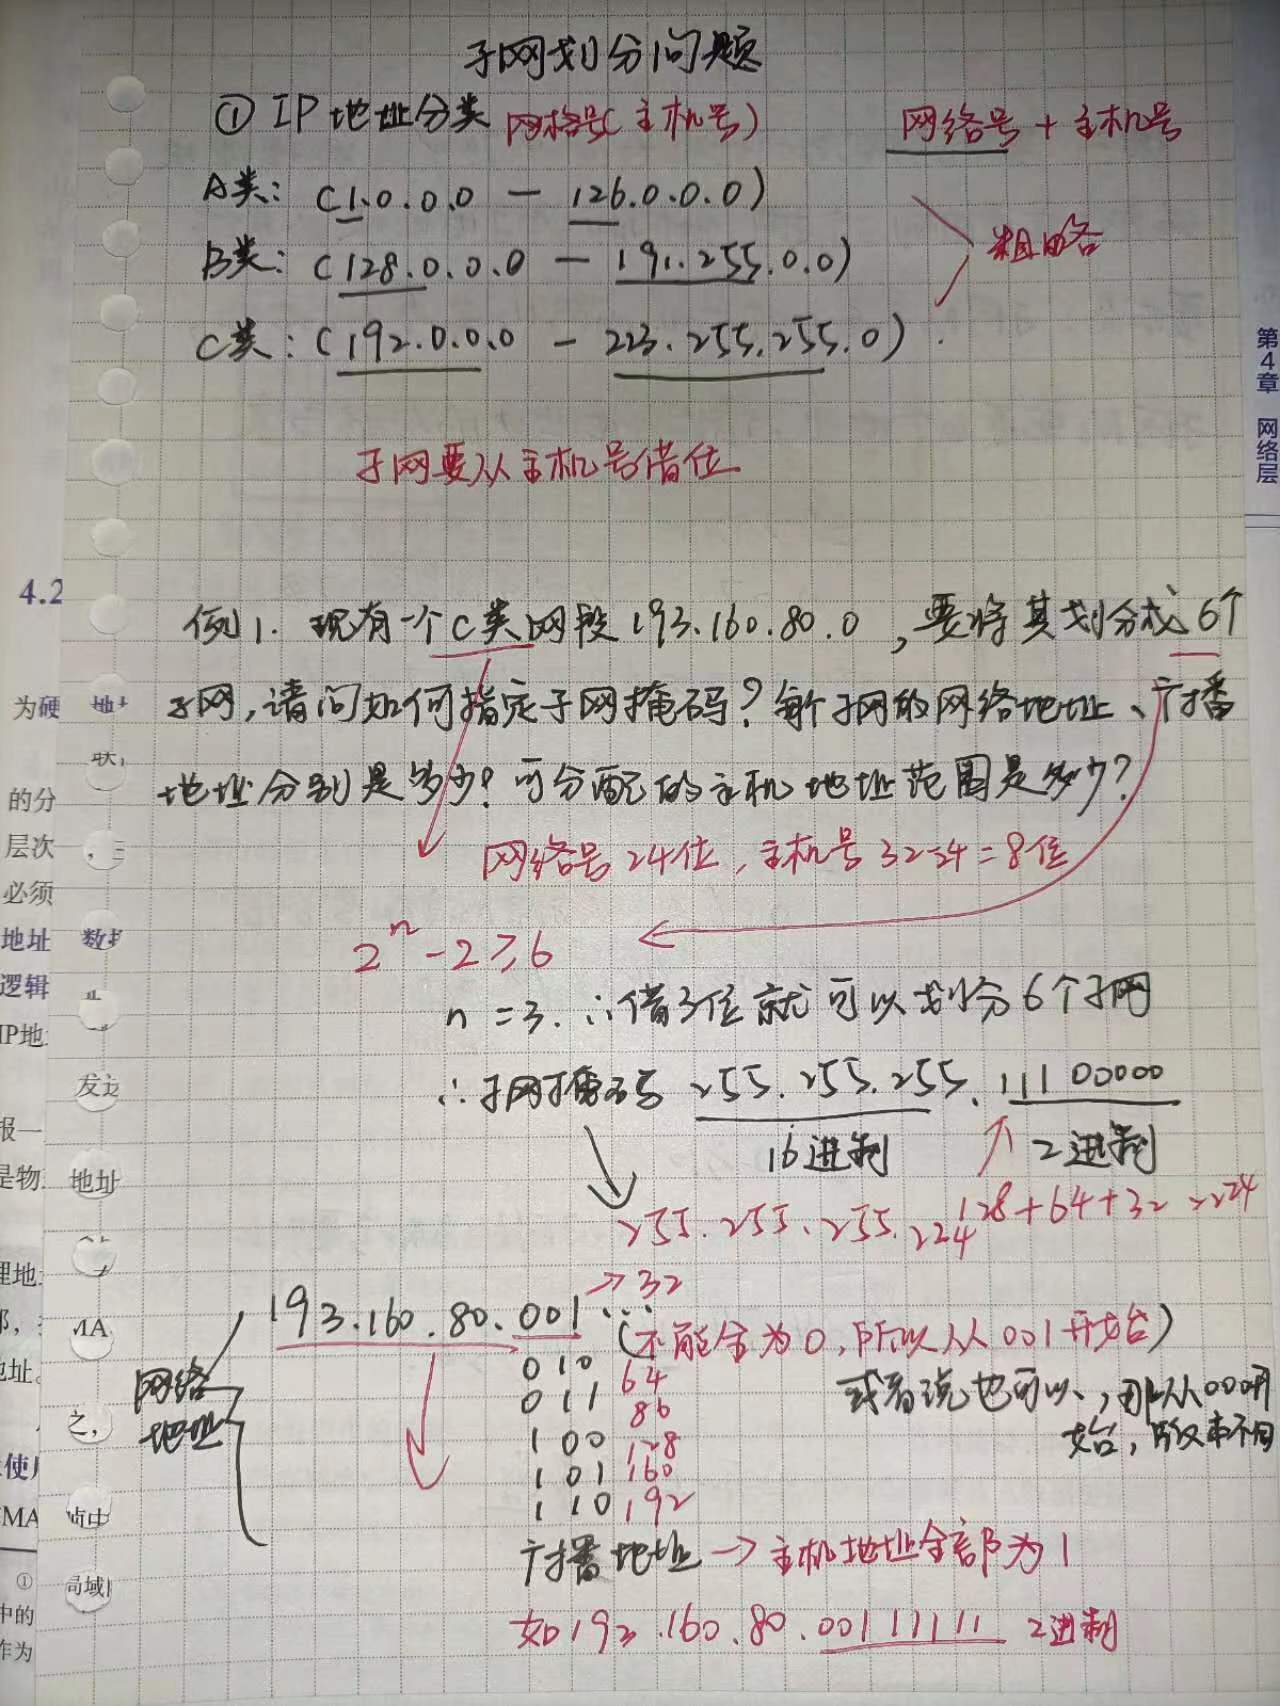 子网划分问题
① IP地址分类 网络号(主机号) 网络号 + 主机号
A类: (1.0.0.0 — 126.0.0.0)
B类: (128.0.0.0 — 191.255.0.0) 粗略
C类: (192.0.0.0 — 223.255.255.0)
子网要从主机号借位
例1. 现有一个C类网段193.160.80.0,要将其划分成6个
子网,请问如何指定子网掩码?每个子网的网络地址、广播
地址分别是多少?可分配的主机地址范围是多少?
网络号24位,主机号32-24=8位
2ⁿ-2≥6
n=3. ∴借3位就可以划分6个子网
∴子网掩码 255.255.255.11100000
16进制 2进制
255.255.255.224 128+64+32=224
→32
193.160.80.001...
(不能全为0,所以从001开始)
010 64
011 86
100 128
101 160
110 192
网络
地址
或者说也可以,那从000开
始,版本不同
广播地址→主机地址全部为1
如193.160.80.00111111 2进制
第4章 网络层
4.2
为硬 地
联
的分
层次
必须
地址 数
逻辑
IP地
发送
报一
是物 地址
理地
MA
地址
之,
使
MA 帧中
①
局域
中的
作为